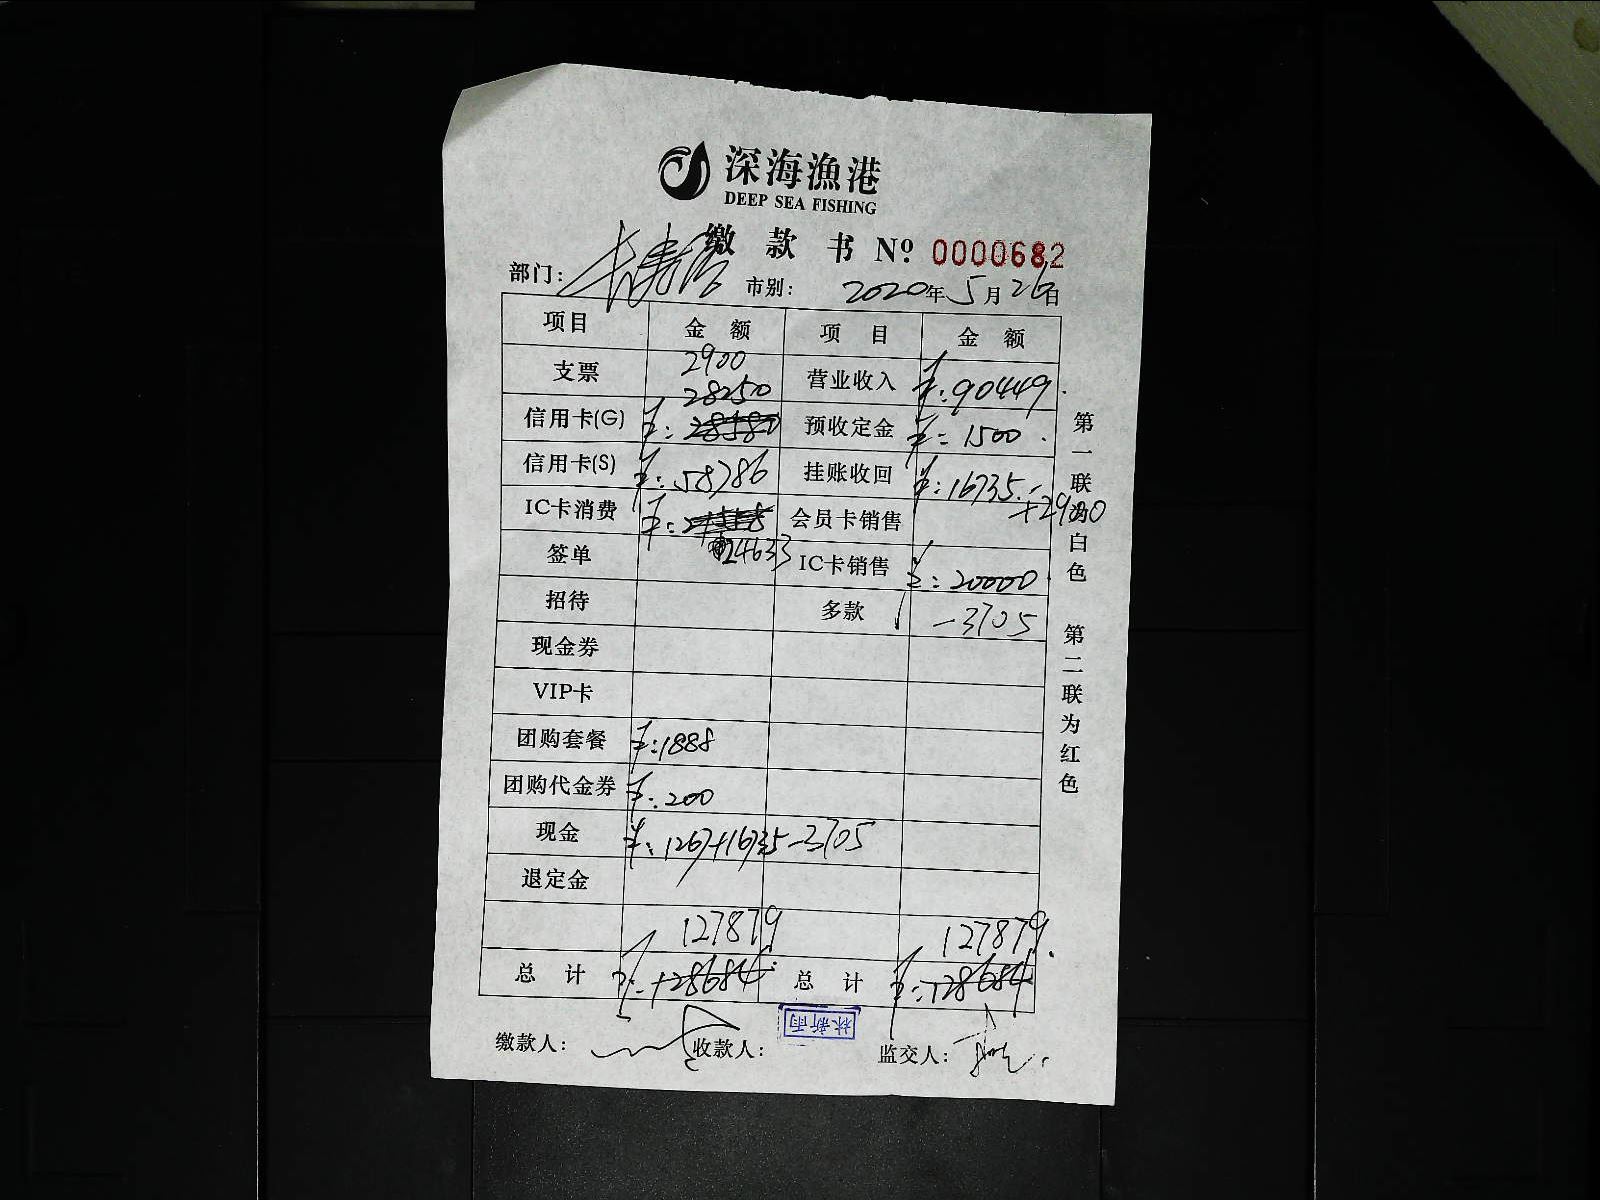 深海漁港
DEEP SEA FISHING
缴款书 Nº 0000682
部门： 市别： 2020年5月26日
项目 金额 项目 金额
支票 2900 营业收入 ¥:90449.
28250
信用卡(G) ¥: 预收定金 ¥: 1500.
信用卡(S) ¥:58786 挂账收回 ¥:16735.-
+2900
IC卡消费 ¥: 会员卡销售
签单 24633 IC卡销售 ¥:20000.
招待 多款 -3705
现金券
VIP卡
团购套餐 ¥:1888
团购代金券 ¥:200
现金 ¥:1267+16735-3705
退定金
127879 127879.
总计 ¥:128684. 总计 ¥:128684
缴款人： 收款人： 林新雨 监交人：
第一联为白色 第二联为红色